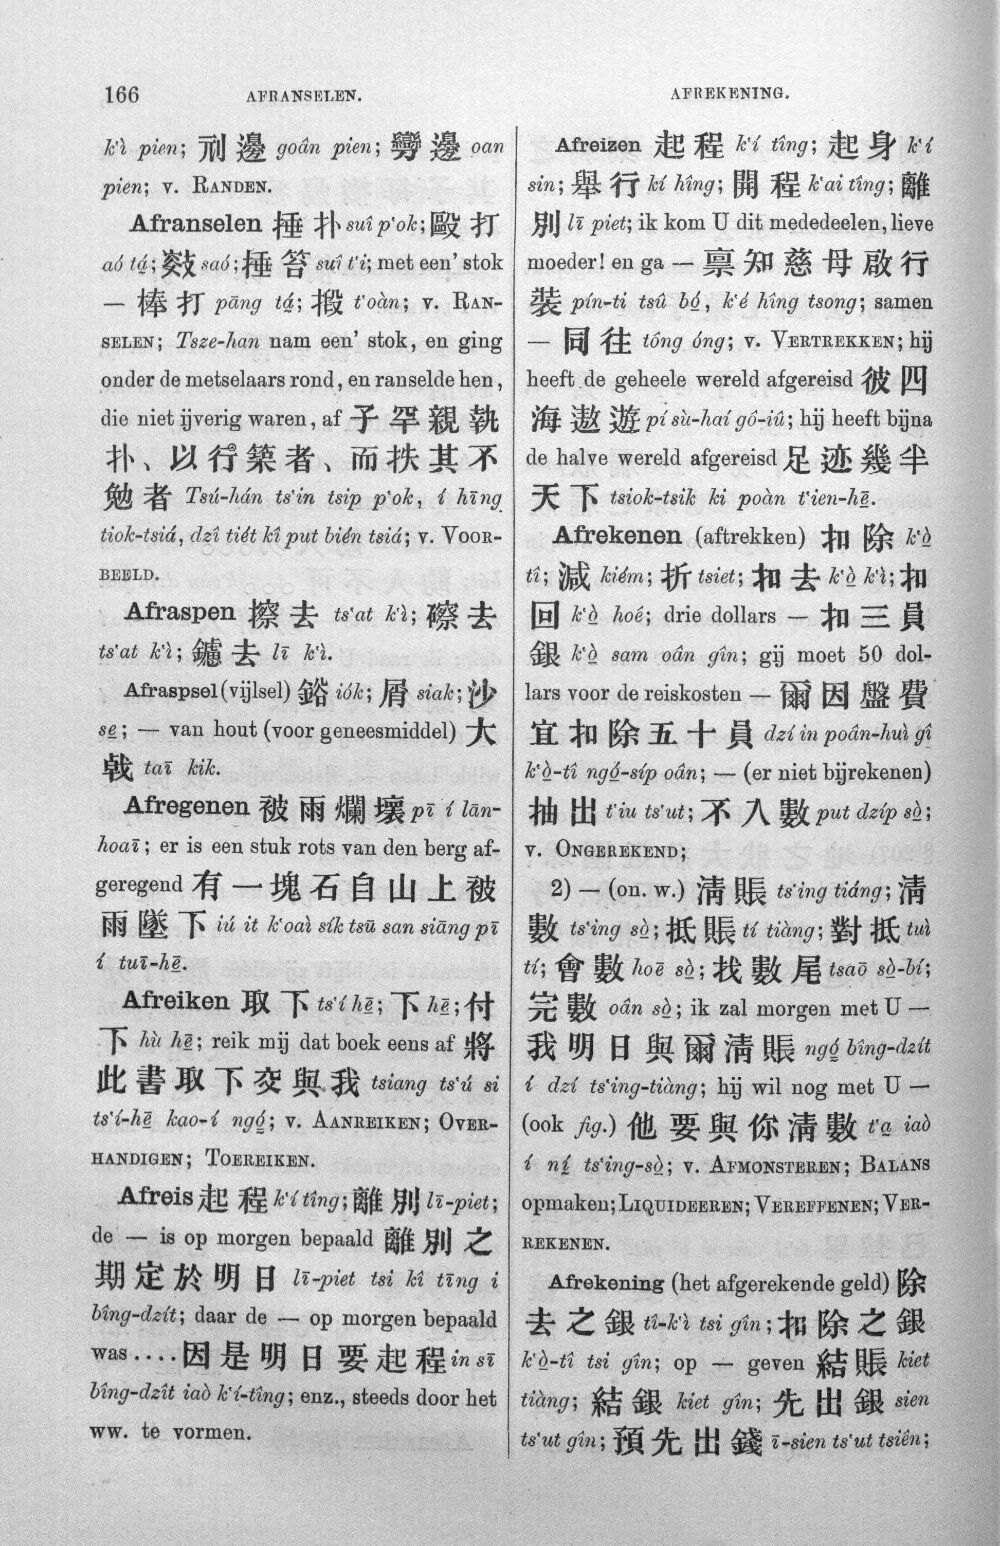 166
AFRANSELEN.
AFREKENING.
k‘ì pien; 刓邊 goân pien; 彎邊 oan
pien; v. RANDEN.
Afranselen 捶扑 suî p‘ok; 毆打
aó tá; 敲 saó; 捶笞 suî t‘i; met een’ stok
— 棒打 pāng tá; 摋 t‘oàn; v. RAN-
SELEN; Tsze-han nam een’ stok, en ging
onder de metselaars rond, en ranselde hen,
die niet ijverig waren, af 子罕親執
扑、以行築者、而抶其不
勉者 Tsú-hán ts‘in tsip p‘ok, í hīng
tiok-tsiá, dzî tiét kî put bién tsiá; v. VOOR-
BEELD.
Afraspen 擦去 ts‘at k‘ì; 礤去
ts‘at k‘ì; 鑢去 lī k‘ì.
Afraspsel (vijlsel) 鋊 iók; 屑 siak; 沙
se̤; — van hout (voor geneesmiddel) 大
戟 taī kik.
Afregenen 被雨爛壞 pī í lān-
hoaī; er is een stuk rots van den berg af-
geregend 有一塊石自山上被
雨墜下 iú it k‘oaì sík tsū san siāng pī
í tuī-hē̤.
Afreiken 取下 ts‘í hē̤; 下 hē̤; 付
下 hù hē̤; reik mij dat boek eens af 將
此書取下交與我 tsiang ts‘ú si
ts‘í-hē̤ kao-í ngó̤; v. AANREIKEN; OVER-
HANDIGEN; TOEREIKEN.
Afreis 起程 k‘í tîng; 離別 lī-piet;
de — is op morgen bepaald 離別之
期定於明日 lī-piet tsi kî tīng i
bîng-dzít; daar de — op morgen bepaald
was .... 因是明日要起程 in sī
bîng-dzît iaò k‘í-tîng; enz., steeds door het
ww. te vormen.
Afreizen 起程 k‘í tîng; 起身 k‘í
sin; 舉行 kí hîng; 開程 k‘ai tîng; 離
別 lī piet; ik kom U dit mededeelen, lieve
moeder! en ga — 禀知慈母啟行
裝 pín-ti tsû bó̤, k‘é hîng tsong; samen
— 同往 tông óng; v. VERTREKKEN; hij
heeft de geheele wereld afgereisd 彼四
海遨遊 pí sù-haí gô-iû; hij heeft bijna
de halve wereld afgereisd 足迹幾半
天下 tsiok-tsik ki poàn t‘ien-hē̤.
Afrekenen (aftrekken) 扣除 k‘ò̤
tî; 減 kiém; 折 tsiet; 扣去 k‘ò̤ k‘ì; 扣
回 k‘ò̤ hoé; drie dollars — 扣三員
銀 k‘ò̤ sam oân gîn; gij moet 50 dol-
lars voor de reiskosten — 爾因盤費
宜扣除五十員 dzí in poân-huì gî
k‘ò̤-tî ngó̤-síp oân; — (er niet bijrekenen)
抽出 t‘iu ts‘ut; 不入數 put dzíp sò̤;
v. ONGEREKEND;
2) — (on. w.) 清賬 ts‘ing tiáng; 清
數 ts‘ing sò̤; 抵賬 tí tiàng; 對抵 tuì
tí; 會數 hoē sò̤; 找數尾 tsaō sò̤-bí;
完數 oân sò̤; ik zal morgen met U —
我明日與爾清賬 ngó̤ bîng-dzít
í dzí ts‘ing-tiàng; hij wil nog met U —
(ook fig.) 他要與你清數 t‘a̤ iaò
í ní̤ ts‘ing-sò̤; v. AFMONSTEREN; BALANS
opmaken; LIQUIDEEREN; VEREFFENEN; VER-
REKENEN.
Afrekening (het afgerekende geld) 除
去之銀 tî-k‘ì tsi gîn; 扣除之銀
k‘ò̤-tî tsi gîn; op — geven 結賬 kiet
tiàng; 結銀 kiet gîn; 先出銀 sien
ts‘ut gîn; 預先出錢 ī-sien ts‘ut tsiên;